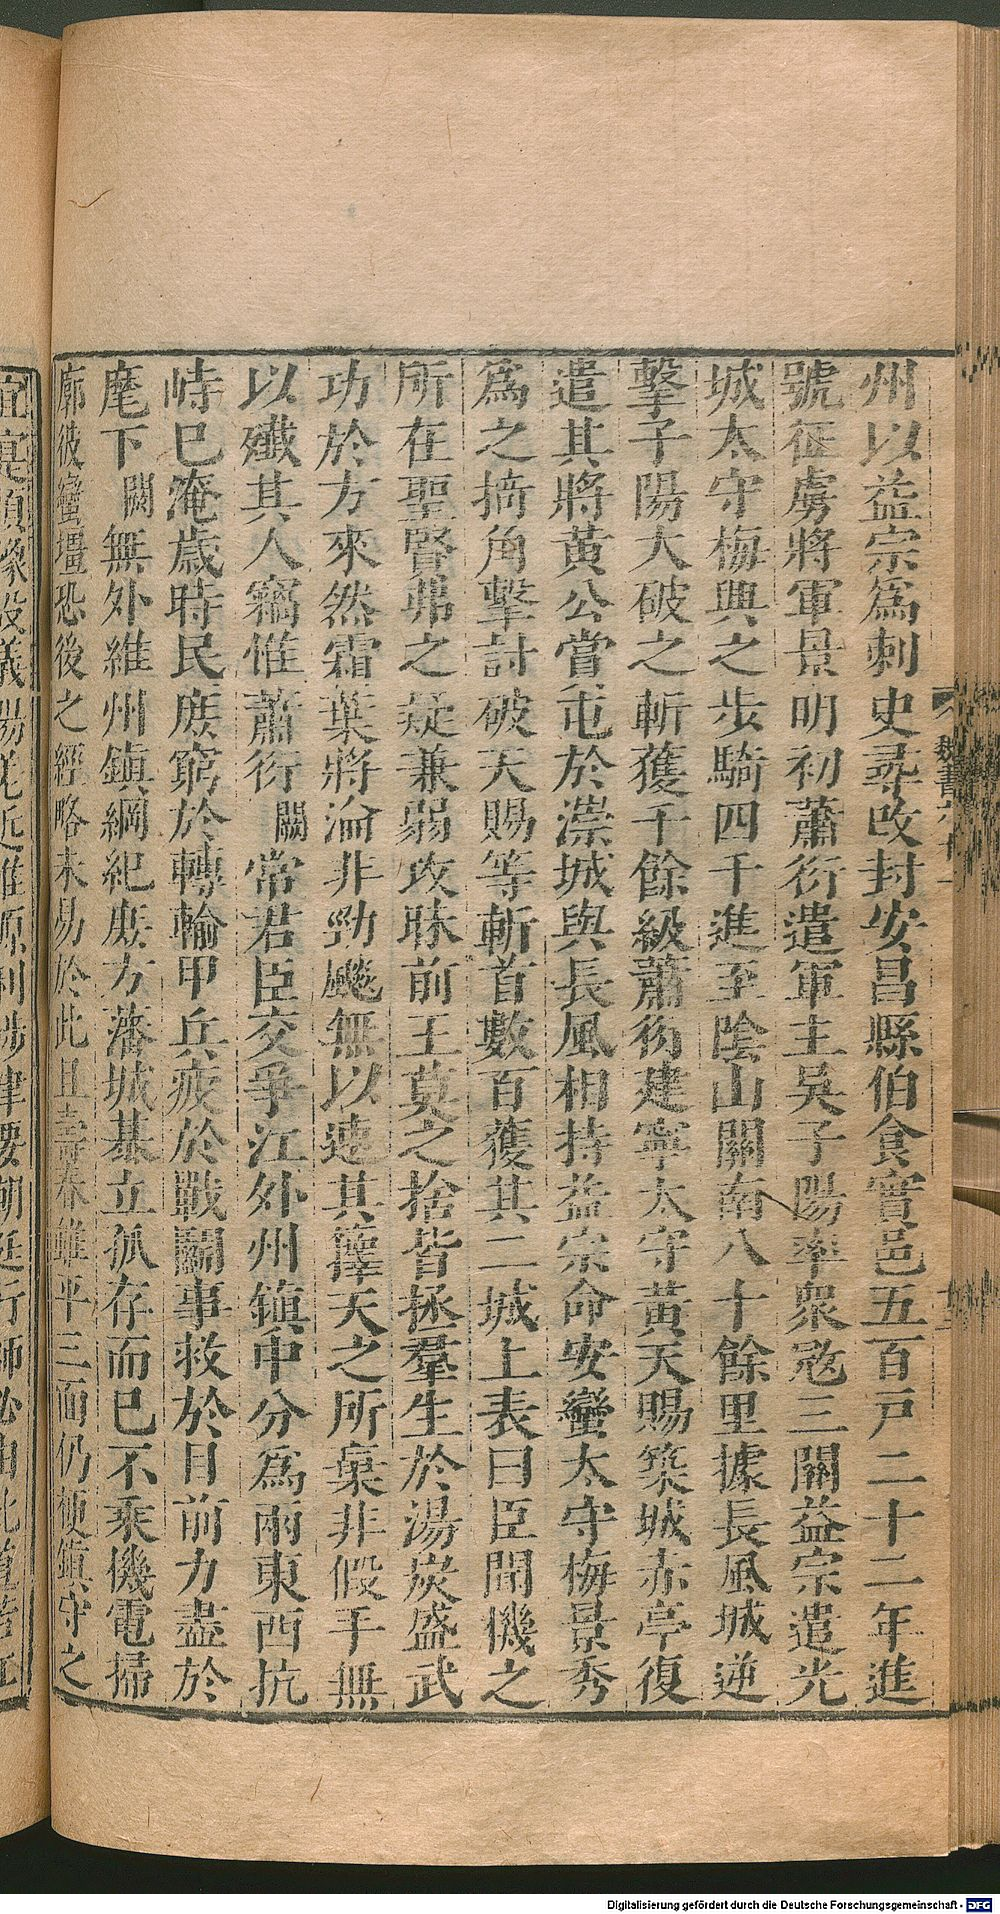 州以益宗爲刺史尋改封安昌縣伯食實邑五百戸二十二年進
號征虜將軍景明初蕭衍遣軍主吳子陽率衆寇三關益宗遣光
城太守梅興之步騎四千進至陰山關南八十餘里據長風城逆
擊子陽大破之斬獲千餘級蕭衍建寧太守黃天賜築城赤亭復
遣其將黃公賞屯於漴城與長風相持益宗命安蠻太守梅景秀
爲之掎角擊討破天賜等斬首數百獲其二城上表曰臣聞機之
所在聖賢弗之疑兼弱攻昧前王莫之捨皆拯羣生於湯炭盛武
功於方來然霜葉將淪非勁飈無以速其籜天之所棄非假手無
以殲其人竊惟蕭衍闕常君臣交爭江外州鎮中分爲兩東西抗
峙已淹歲時民庶窮於轉輸甲兵疲於戰鬭事救於目前力盡於
麾下闕無外維州鎮綱紀庶方藩城基立孤存而已不乘機電掃
廓彼蠻壃恐後之經略未易於此且壽春雖平三面仍梗鎮守之
Digitalisierung gefördert durch die Deutsche Forschungsgemeinschaft - DFG